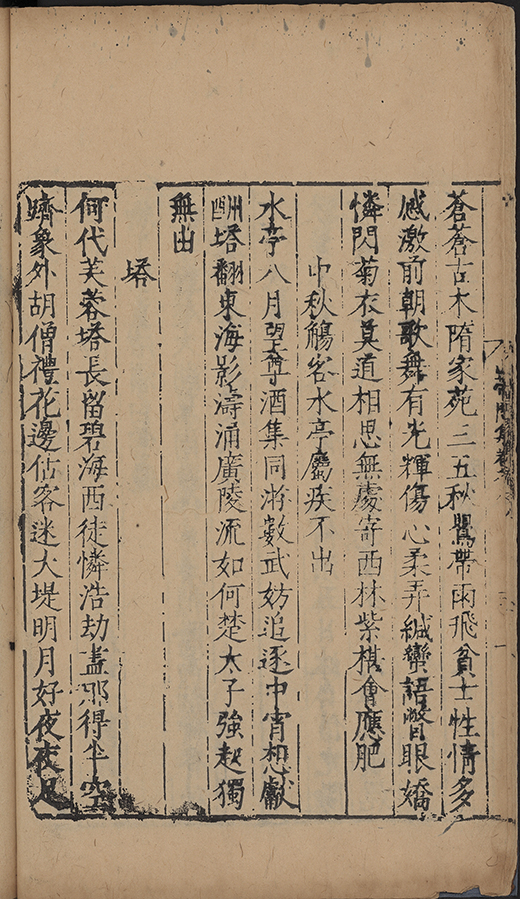 蒼蒼古木隋家苑三五秋鶯帶雨飛貧士性情多
感激前朝歌舞有光輝傷心柔弄緘蠻語瞥眼嬌
憐閃菊衣莫道相思無處寄西林紫椹會應肥
中秋觴客水亭屬疾不出
水亭八月望尊酒集同游數武妨追逐中宵想獻
酬塔翻東海影濤涌廣陵流如何楚太子強起獨
無由
塔
何代芙蓉塔長留碧海西徒憐浩劫盡那得半空
躋象外胡僧禮花邊估客迷大堤明月好夜夜足